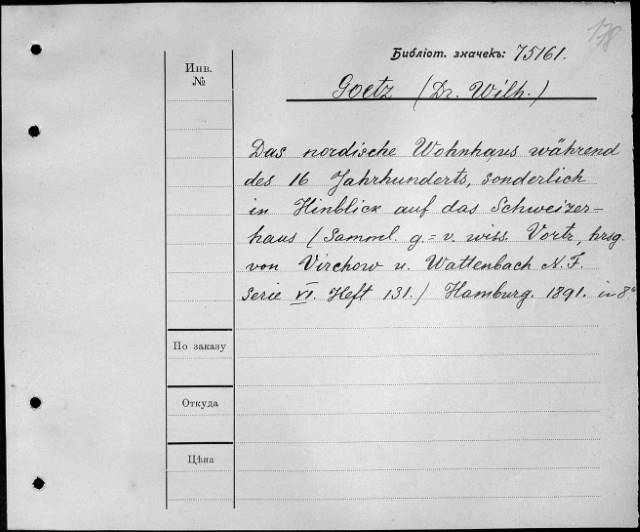 178
Библіот. значекъ: 75161.
Инв.
№
Goetz (Dr. Wilh.)
Das nordische Wohnhaus während
des 16 Jahrhunderts, sonderlich
in Hinblick auf das Schweizer-
haus (Samml. g.=v. wiss. Vortr, hrsg.
von Virchow u. Wattenbach N.F.
Serie VI. Heft 131.) Hamburg. 1891. in 8º
По заказу
Откуда
Цѣна